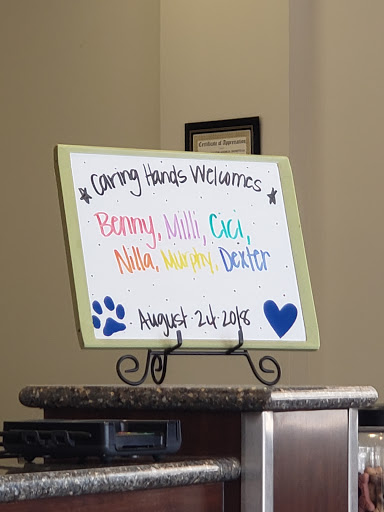 Certificate of Appreciation
Caring Hands Welcomes
Benny, Milli, Cici,
Nilla, Murphy, Dexter
August 24 2018